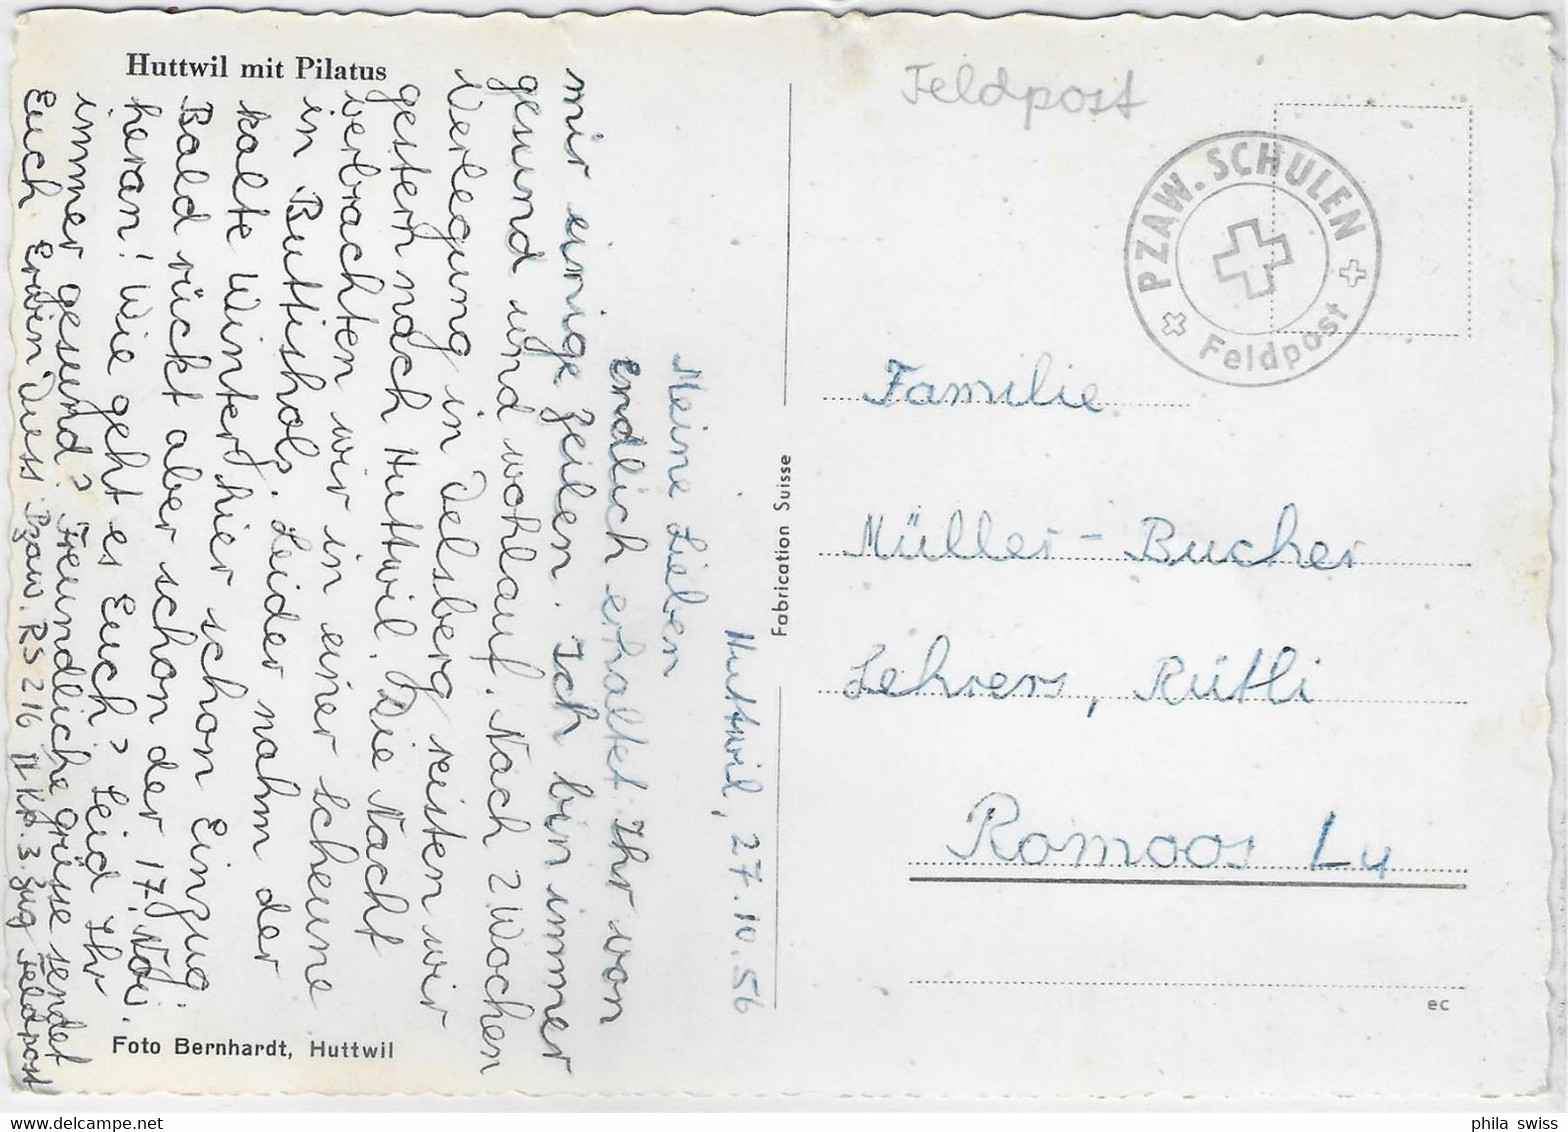 Huttwil mit Pilatus
Huttwil, 27.10.56
Meine Lieben
Endlich erhaltet Ihr von
mir einige Zeilen. Ich bin immer
gesund und wohlauf. Nach 2 Wochen
Verlegung in Delsberg reisten wir
gestern nach Huttwil. Die Nacht
verbrachten wir in einer Scheune
in Buttisholz. Leider nahm der
kalte Winter hier schon Einzug.
Bald rückt aber schon der 17. Nov.
heran! Wie geht es Euch? Seid Ihr
immer gesund? Freundliche Grüsse sendet
Euch Erwin Duss Pzaw. RS 216 II Kp. 3. Zug Feldpost
Foto Bernhardt, Huttwil
Fabrication Suisse
Feldpost
PZAW. SCHULEN
Feldpost
Familie
Müller-Bucher
Lehrers, Rütli
Romoos Lu
ec
phila swiss